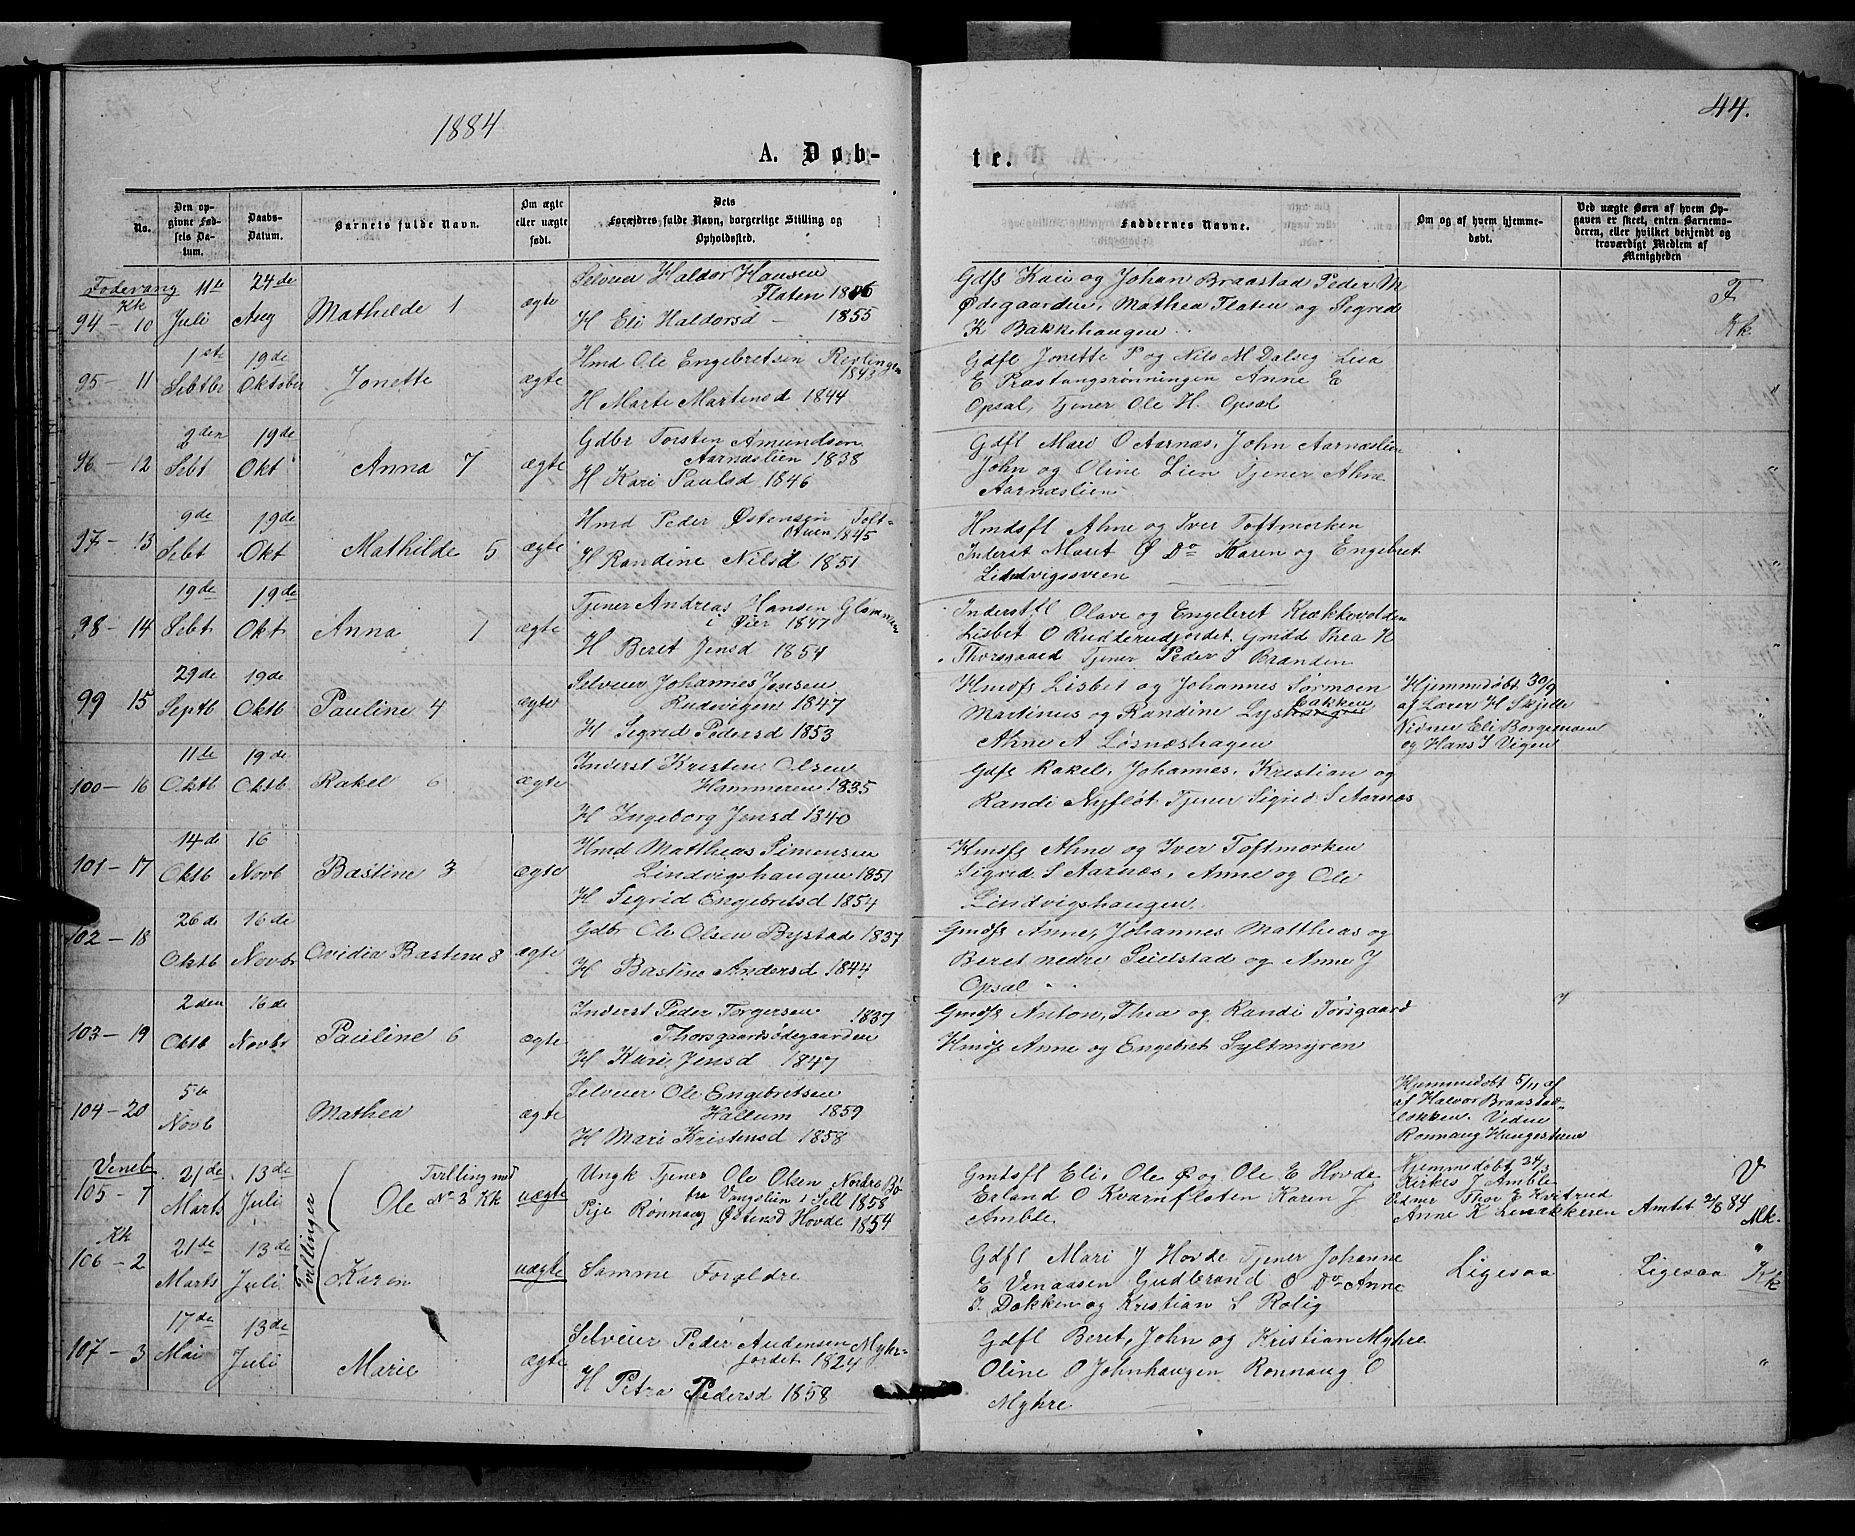 44.
1884
A. Døb-
te.
No.
Den op-
givne Fød-
sels Da-
tum.
Daabs-
Datum.
Barnets fulde Navn.
Om ægte
eller uægte
født.
Dets
Forældres fulde Navn, borgerlige Stilling og
Opholdssted.
Faddernes Navne.
Om og af hvem hjemme-
døbt.
Ved uægte Børn af hvem Op-
gaven er skeet, enten Barnemo-
deren, eller hvilket bekjendt og
troværdigt Medlem af
Menigheden
Fodevang
Kk
94 - 10
11te
Juli
24de
Aug
Mathilde 1
ægte
Selveier Haldor Hansen
Flaten
H Eli Haldorsd - 1855
Gdfs Kari og Johan Braastad Peder M
Ødegaarden, Mathea Flaten og Sigrid
K Bakkehaugen
F
Kk
95 - 11
1ste
Sebtbr
19de
Oktober
Jonette
ægte
Hmd Ole Engebretsen
1843
H Marte Martensd 1844
Gdfl Jonette P og Nils M Dalseg Lisa
E Rastangsrønningen Anne E
Opsal, Tjener Ole H. Opsal
"
96 - 12
2den
Sebt
19de
Okt
Anna 7
ægte
Gdbr Torsten Amundsen
Aarnæslien 1838
H Kari Paulsd 1846
Gdfl Mari O Aarnæs, John Aarnæslien
John og Oline Lien Tjener Ahne
Aarnæslien
"
97 - 13
9de
Sebt
19de
Okt
Mathilde 5
ægte
Hmd Peder Østensen Toft-
stuen 1845
H Randine Nilsd 1851
Hmdsfl Ahne og Iver Toftmorken
Inderst Marit Ø Do Karen og Engebret
Lindvigsveen
"
98 - 14
19de
Sebt
19de
Okt
Anna 7
ægte
Tjener Andreas Hansen Glommen
i Øier 1847
H Beret Jensd 1854
Inderstfl Olave og Engebret Kækkevolden
Lisbet O Rudderudjordet. Gmdd Thea H
Thorsgaard Tjener Peder J Branden
99 15
29de
Septb
19de
Oktb
Pauline 4
ægte
Selveier Johannes Jensen
Rudevigen 1847
H Sigrid Pedersd 1853
Hmdfs Lisbet og Johannes Sørmoen
Martinus og Randine Lysbakken
Ahne A Løsnæshagen
Hjemmedøbt 30/9
af Lærer H Skjelle
Vidner Eli Borgesmoen
og Hans J Vigen
100 - 16
11te
Oktb
19de
Oktb
Rakel 6
ægte
Inderst Kristen Olsen
Hammeren 1835
H Ingeborg Jensd 1840
Gdfs Rakel, Johannes, Kristian og
Randi Nyfløt Tjener Sigrid S Aarnæs
101 - 17
14de
Oktb
16
Novb
Bastine 3
ægte
Hmd Mattheas Simensen
Lindvigshaugen 1851
H Sigrid Engebretsd 1854
Hmdfs Ahne og Iver Toftmorken
Sigrid S Aarnæs, Anne og Ole
Lindvigshaugen.
102 - 18
26de
Oktb
16de
Novbr
Ovidia Bastine 8
ægte
Gdbr Ole Olsen Bystad 1837
H Bastine Andersd 1844
Gmdfs Anne, Johannes Matthias og
Beret nedre Seielstad og Anne J
Opsal
103 - 19
2den
Oktb
16de
Novbr
Pauline 6
ægte
Inderst Peder Torgersen 1837
Thorsgaardsødegaarden
H Kari Jensd 1847
Gmdfs Anton, Thea og Randi Torsgaard
Hmdfs Anne og Engebret Syltmyren
104 - 20
5te
Novb
Mathea
ægte
Selveier Ole Engebretsen
Hallum 1859
H Mari Kristensd 1858
Hjemmedøbt 5/11 af
af Halvor Braastad-
løkken. Viden
Rønnaug Haugestuen
Veneb
105 - 1
21de
Marts
13de
Juli
Ole
Tvilling med
No 3 Kk
uægte
Ungk Tjener Ole Olsen Nordre Bø
fra Vangslien i Sell 1858
Pige Rønnaug Østensd Hovde 1854
Gmdsfl Eli, Ole Ø og Ole E Hovde
Erland O Kvarnfloten Karen J
Amble
Hjemmedøbt 24/3
Kirkes J Amble
Vidner Thor J Kvitrud
Anne K
Amtet 2/8 84
V
Mk.
Kk
106 - 2
21de
Marts
13de
Juli
Tvillinger
Karen
uægte
Samme Forældre
Gdfl Mari J Hovde Tjener Johanne
E Venaasen Gudbrand O Do Anne
J. Dokken og Kristian S Rolig
Ligesaa
Ligesaa
"
Kk
107 - 3
17de
Mai
13de
Juli
Marie
ægte
Selveier Peder Audensen Myhr-
jordet 1824
H Petra Pedersd 1858
Gdfl Beret, John og Kristian Myhre
Oline O Johnhaugen Rønnaug O
Myhre
"